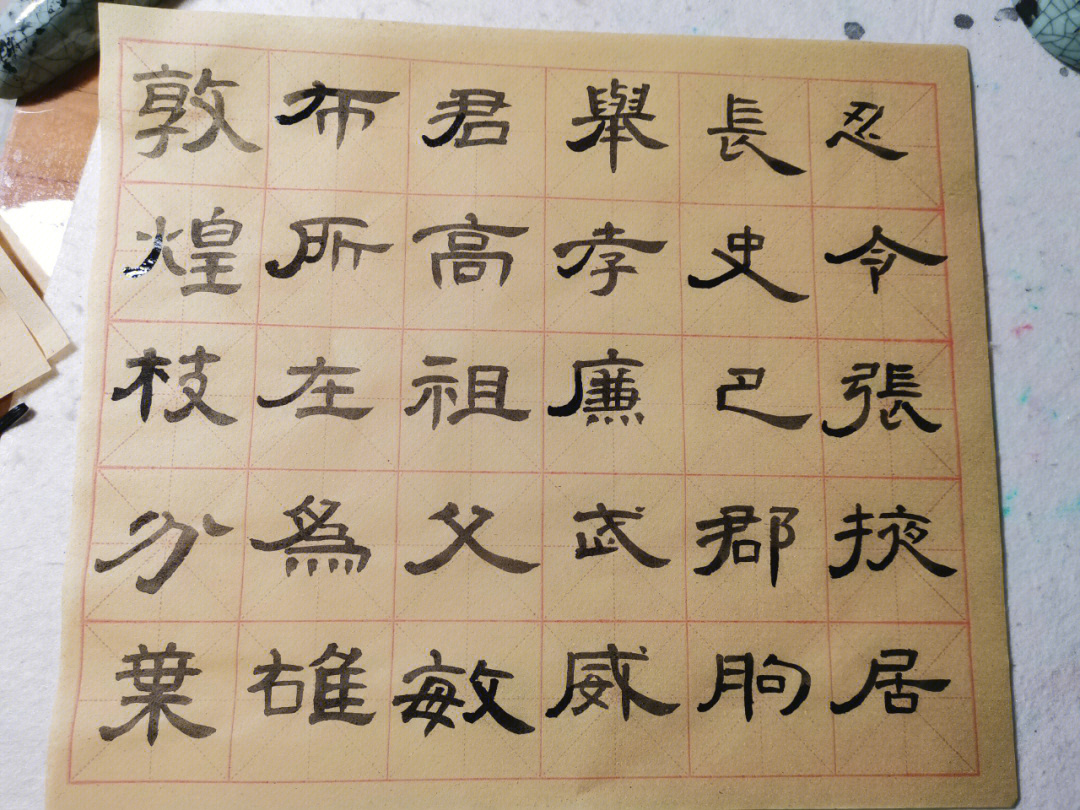 敦煌枝分葉
布所在爲雄
君高祖父敏
舉孝廉武威
長史巴郡朐
忍令張掖居